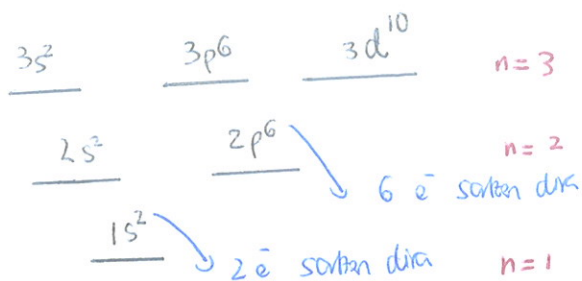 3s² 3p⁶ 3d¹⁰ n=3
2s² 2p⁶ n=2
6 ē sartzen dira
1s²
2 ē sartzen dira n=1